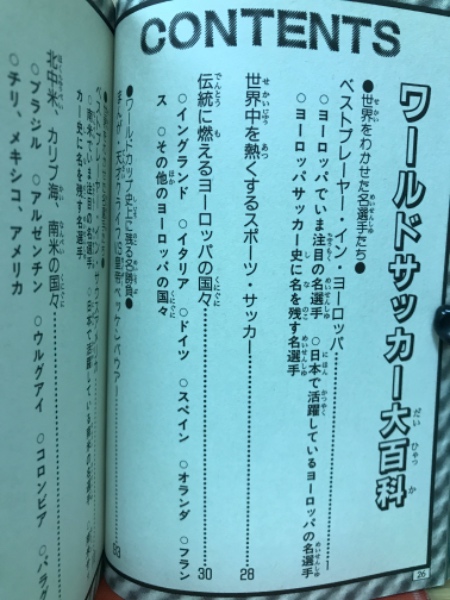 CONTENTS
ワールドサッカー大百科
●世界をわかせた名選手たち●
ベストプレーヤー・イン・ヨーロッパ
○ヨーロッパでいま注目の名選手 ○日本で活躍しているヨーロッパの名選手
○ヨーロッパサッカー史に名を残す名選手
世界中を熱くするスポーツ・サッカー 28
伝統に燃えるヨーロッパの国々 30
○イングランド ○イタリア ○ドイツ ○スペイン ○オランダ ○フラン
ス ○その他のヨーロッパの国々
●ワールドカップ史上に残る名勝負●
まんが・天才クライフVS皇帝ベッケンバウアー 93
○南米でいま注目の名選手 ○日本で活躍している
カー史に名を残す名選手
北中米、カリブ海、南米の国々
○ブラジル ○アルゼンチン ○ウルグアイ ○コロンビア ○パラグ
○チリ、メキシコ、アメリカ
26